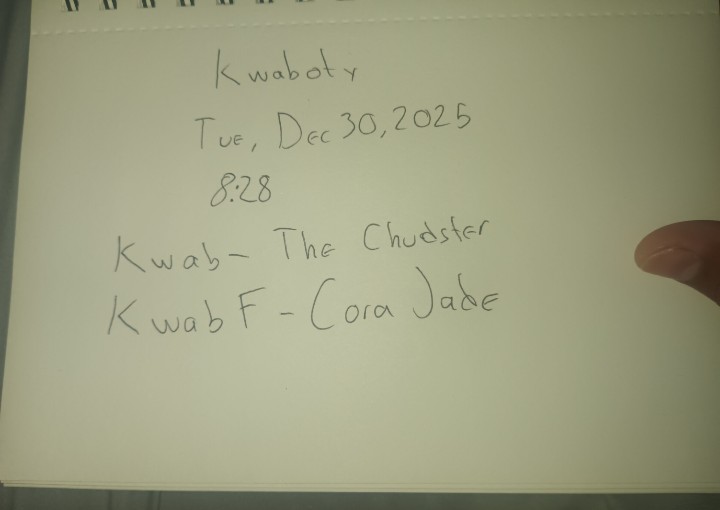 Kwaboty
Tue, Dec 30, 2025
8:28
Kwab- The Chudster
Kwab F - Cora Jade